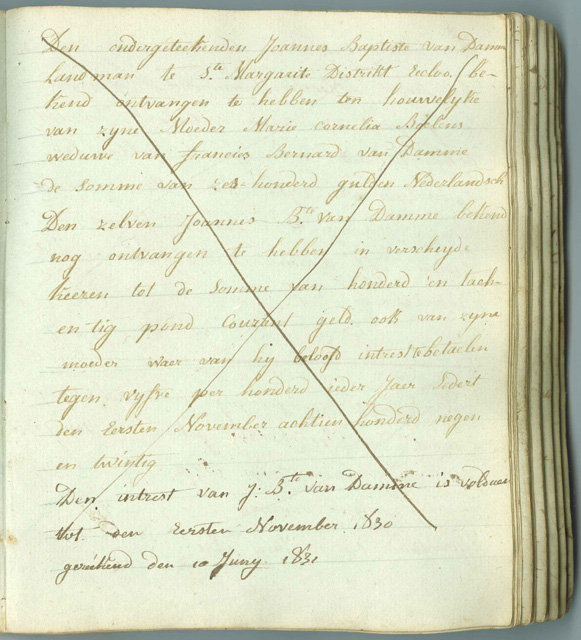 Den ondergeteekenden Joannes Baptiste van Damme
Landman te Ste Margarite Distrikt Eecloo be-
kend ontvangen te hebben ten houwelyke
van zyne Moeder Marie Cornelia Boelens
weduwe van francies Bernard van Damme
de somme van zes-honderd gulden Nederlandsch
Den zelven Joannis Bte van Damme bekend
nog ontvangen te hebben in verscheyde
keeren tot de somme van honderd en tach-
en-tig pond Courant geld ook van zyne
moeder waer van hy beloofd intrest te betaelen
tegen vyfve per honderd ieder Jaer Sedert
den Eersten November achtien honderd negen
en twintig
Den intrest van J: Bte van Damme is voldaen
tot den Eersten November 1830
den 10 Juny 1831